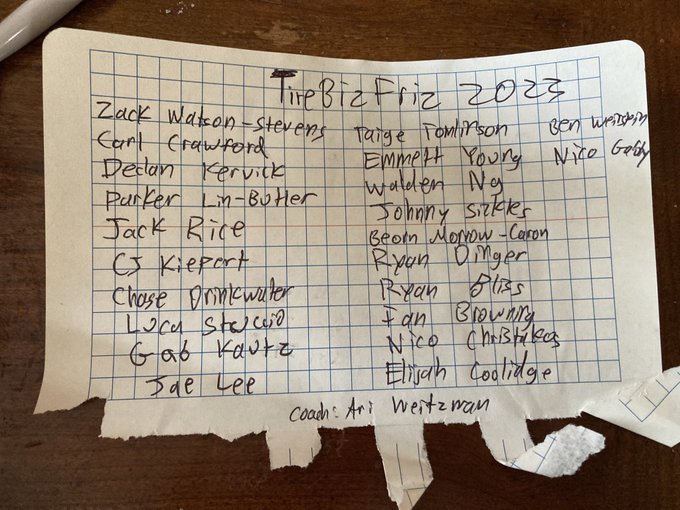 TireBizFriz 2023
Zack Watson-Stevens
Carl Crawford
Declan Kervick
Parker Lin-Butler
Jack Rice
CJ Kiepert
Chase Drinkwater
Luca
Gab Kautz
Jae Lee
Taige Tomlinson
Emmett Young
Walden Ng
Johnny Sickles
Beorn Morrow-Caron
Ryan Dinger
Ryan Bliss
Ian Browning
Nico Christakos
Elijah Coolidge
Ben
Nico
Coach: Ari Weitzman